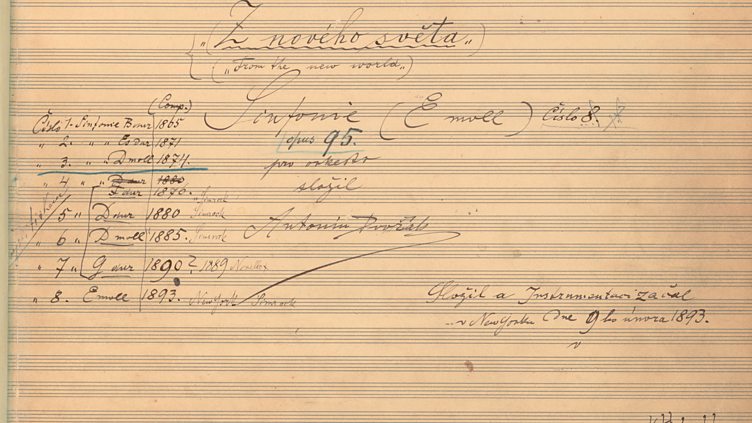 „Z nového světa„
(„From the new world„)
Sinfonie (E moll) Číslo 8.
opus 95.
pro orkestr
složil
Antonín Dvořák
(Comp.)
Číslo 1. Sinfonie B dur 1865
„ 2. „ „ Es dur 1871
„ 3. „ „ D moll 1874.
„ 4 „ D dur 1880
F dur 1876. Simrock
„ 5 „ D dur 1880 Simrock
„ 6 „ D moll 1885. Simrock
„ 7 „ G dur 1890? 1889 Novello
„ 8. E moll 1893. New York Simrock
Složil a Instrumentaci začal
v New Yorku dne 9ho února 1893.